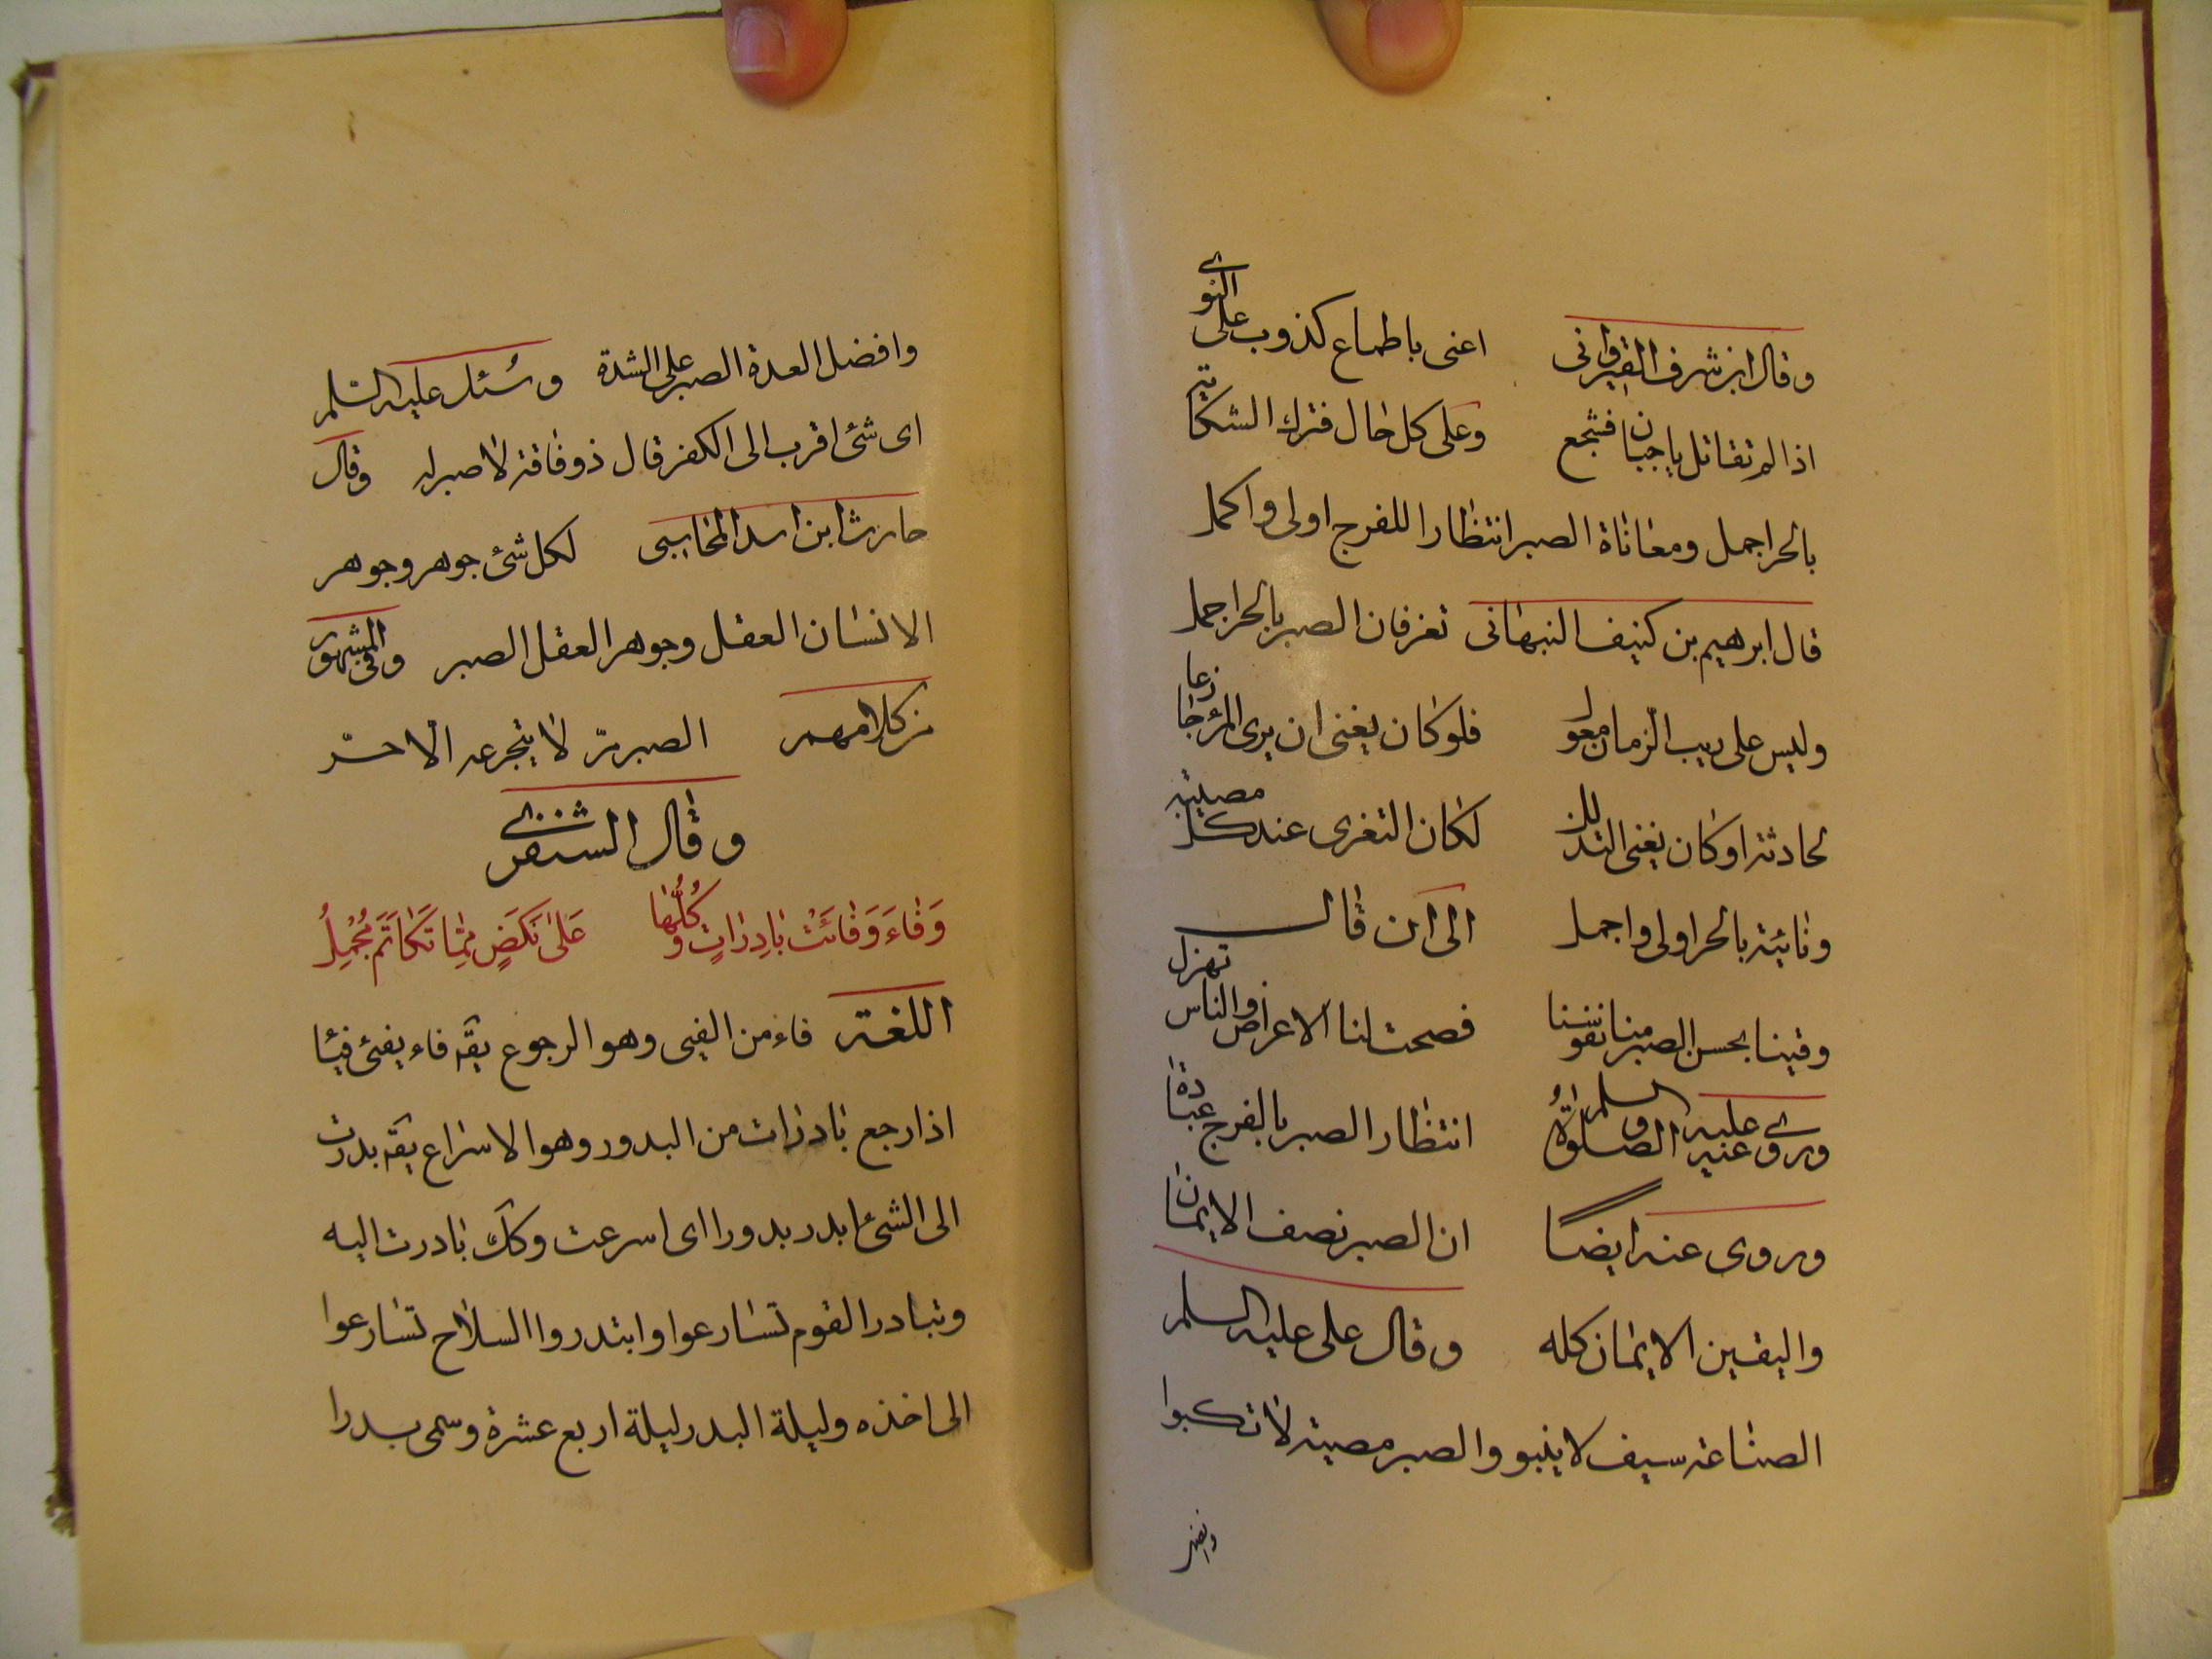 وقال ابن شرف القيروانى اعنى باطماع كذوب على النوى
اذا لم تقاتل يا جبان فشجع وعلى كل حال فترك الشكاية
بالحر اجمل ومعاناة الصبر انتظارا للفرج اولى واكمل
قال ابرهيم بن كنيف النبهانى تعز فان الصبر بالحر اجمل
وليس على ريب الزمان معول فلو كان يغنى ان يرى المرء جازعا
لحادثة او كان يغنى التذلل لكان التعزى عند كل مصيبة
ونائبة بالحر اولى واجمل الى ان قال
وقينا بحسن الصبر منا نفوسنا فصحت لنا الاعراض والناس تهزل
وروى عنه عليه الصلوة والسلم انتظار الصبر بالفرج عبادة
وروى عنه ايضا ان الصبر نصف الايمان
واليقين الايمان كله وقال على عليه السلم
الصناعة سيف لا ينبو والصبر مصية لا تكبوا
وافضل
وافضل العدة الصبر على الشدة وسُئل عليه السّلم
اى شئ اقرب الى الكفر قال ذو فاقة لا صبر له وقال
حارث ابن اسد المحاسبى لكل شئ جوهر وجوهر
الانسان العقل وجوهر العقل الصبر وفى المشهور
من كلامهم الصبر مرّ لا يتجرعه الّا حرّ
وقال الشنفرى
وَفَاءَ وَفَائَتْ بَادِرَاتٍ وَكُلُّهَا عَلىٰ نَكَضٍ مِمّا تَكَاتَمَ مُجْمِلُ
اللغة فاء من الفيى وهو الرجوع يقه فاء يفيئ فيئا
اذا رجع بادرات من البدور وهو الاسراع يقه بدرت
الى الشئ ابدر بدورا اى اسرعت وكك بادرت اليه
وتبادر القوم تسارعوا وابتدروا السلاح تسارعوا
الى اخذه وليلة البدر ليلة اربع عشرة وسمى بدرا